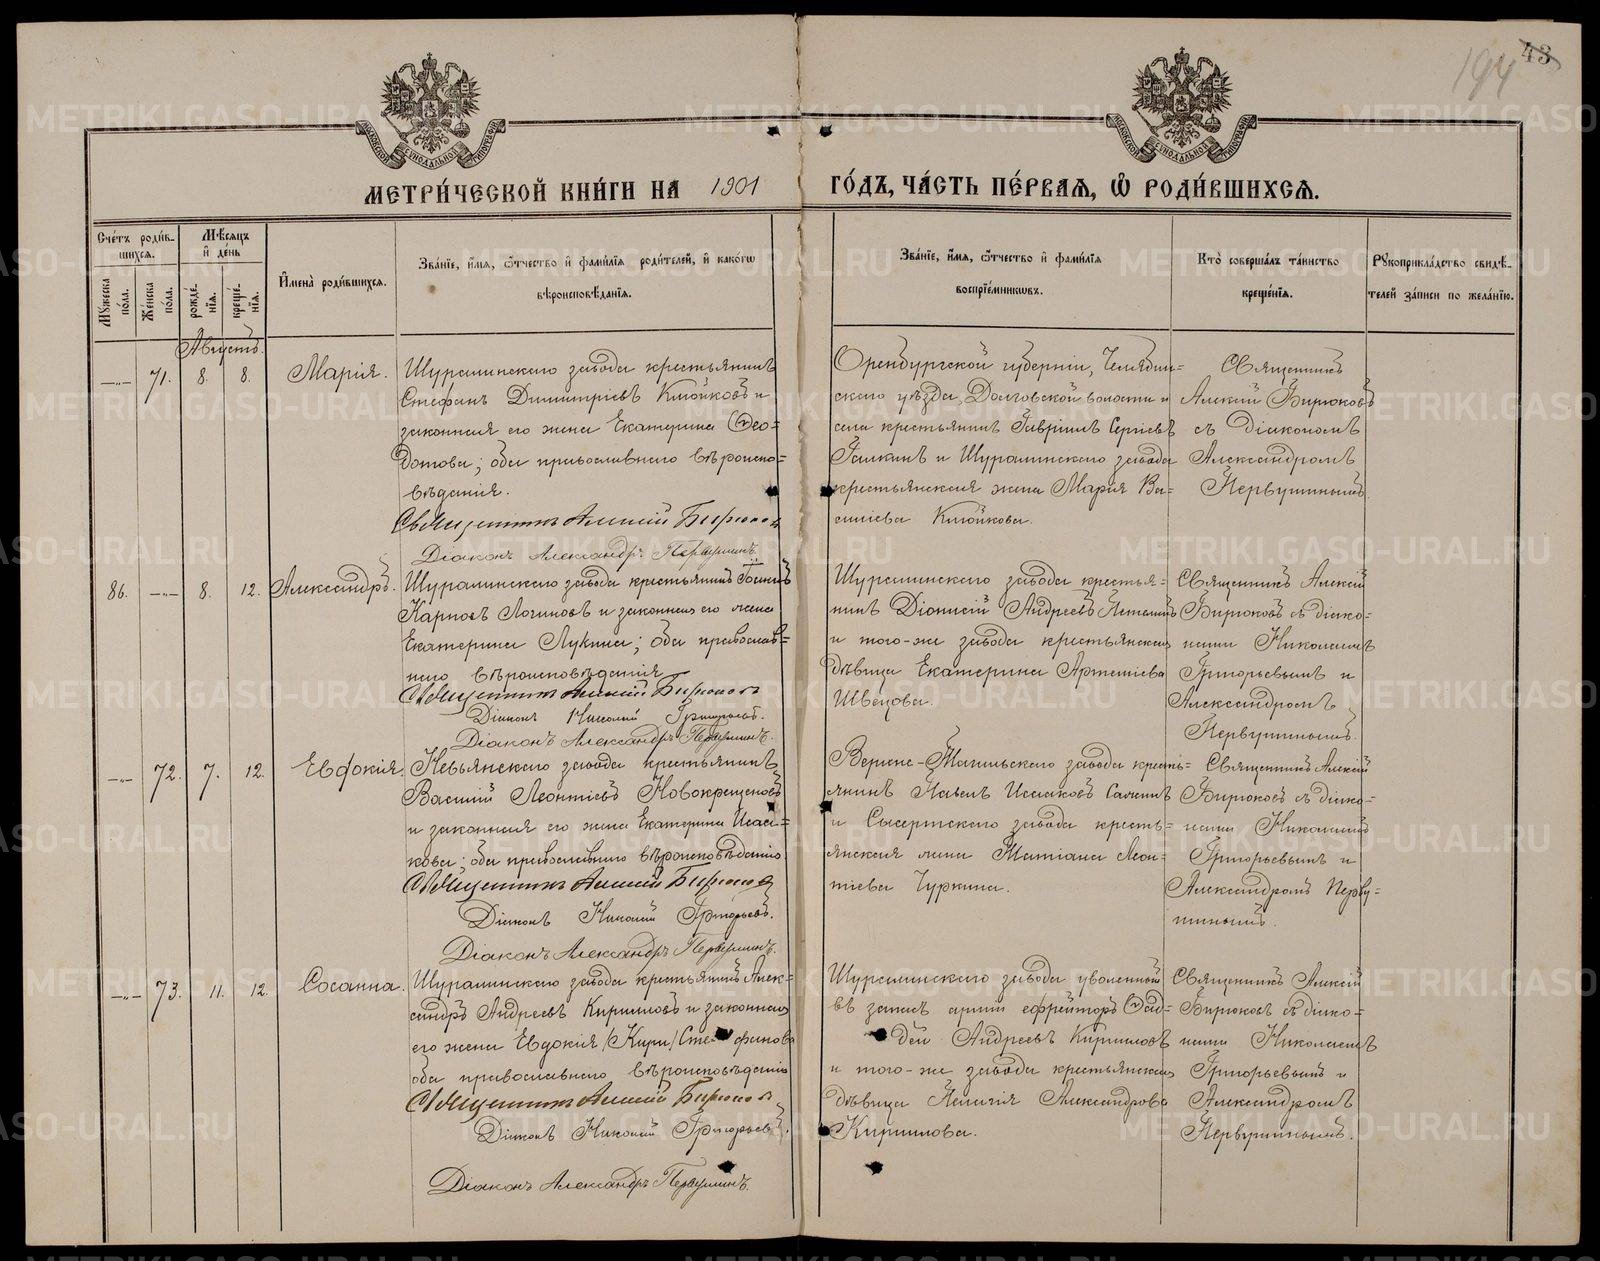 194
43
МОСКОВСКОЙ СѴНОДАЛЬНОЙ ТИПОГРАФІИ
МОСКОВСКОЙ СѴНОДАЛЬНОЙ ТИПОГРАФІИ
МЕТРИ́ЧЕСКОЙ КНИ́ГИ НА 1901 ГО́ДЪ, ЧА́СТЬ ПЕ́РВАѦ, Ѡ҆ РОДИ́ВШИХСѦ.
Сче́тъ роди́в-
шихся.
Мѣ́сяцъ
и҆ де́нь
Му́жеска
по́ла.
Же́нска
по́ла.
рожде́-
нїя.
креще́-
нїя.
И҆мена̀ роди́вшихся.
Зва́нїе, и҆́мя, ѻ҆́тчество и҆ фами́лїя роди́телей, и҆ како́гѡ
вѣроисповѣ́данїя.
Зва́нїе, и҆́мя, ѻ҆́тчество и҆ фами́лїя
воспрїе́мникѡвъ.
Кто̀ соверша́лъ та́инство
креще́нїя.
Рꙋкоприкла́дство свидѣ́-
телей за́писи по жела́нїю.
Августъ.
71.
8.
8.
Марія.
Шуралинскаго завода крестьянинъ
Стефанъ Димитріевъ Клюйковъ и
законная его жена Екатерина Ѳео-
дотова; оба православнаго вѣроиспо-
вѣданія.
Священникъ Алексій Бирюковъ
Діаконъ Александръ Первушинъ.
Оренбургской губерніи, Челябин-
скаго уѣзда, Долговской волости и
села крестьянинъ Гавріилъ Сергіевъ
Галкинъ и Шуралинскаго завода
крестьянская жена Марія Ва-
силіева Клюйкова.
Священникъ
Алексій Бирюковъ
съ діакономъ
Александромъ
Первушинымъ.
86.
8.
12.
Александръ.
Шуралинскаго завода крестьянинъ
Карповъ Логиновъ и законная его жена
Екатерина Лукина; оба православ-
наго вѣроисповѣданія
Священникъ Алексій Бирюковъ
Діаконъ Николай Григорьевъ.
Діаконъ Александръ Первушинъ.
Шуралинскаго завода крестья-
нинъ Діонисій Андреевъ
и того-же завода крестьянская
дѣвица Екатерина Артеміева
Швецова.
Священникъ Алексій
Бирюковъ съ діако-
нами Николаемъ
Григорьевымъ и
Александромъ
Первушинымъ.
72.
7.
12.
Евдокія.
Невьянскаго завода крестьянинъ
Василій Леонтіевъ Новокрещеновъ
и законная его жена Екатерина Исаа-
кова; оба православнаго вѣроисповѣданія
Священникъ Алексій Бирюковъ
Діаконъ Николай Григорьевъ.
Діаконъ Александръ Первушинъ.
Верхне-Тагильскаго завода кресть-
янинъ Павелъ Исааковъ
и Сысертскаго завода кресть-
янская Татіана Леон-
тіева Чуркина.
Священникъ Алексій
Бирюковъ съ діако-
нами Николаемъ
Григорьевымъ и
Александромъ Перву-
шинымъ.
73.
11.
12.
Сосанна.
Шуралинскаго завода крестьянинъ Алек-
сандръ Андреевъ Кирилловъ и законная
его жена Евдокія /Кири/ Стефанова
оба православнаго вѣроисповѣданія
Священникъ Алексій Бирюковъ
Діаконъ Николай Григорьевъ.
Діаконъ Александръ Первушинъ.
Шуралинскаго завода уволенный
въ запасъ арміи ефрейторъ Ѳад-
дей Андреевъ Кирилловъ
и того-же завода крестьянская
дѣвица Пелагія Александрова
Кириллова.
Священникъ Алексій
Бирюковъ съ діако-
нами Николаемъ
Григорьевымъ и
Александромъ
Первушинымъ.
METRIKI.GASO-URAL.RU